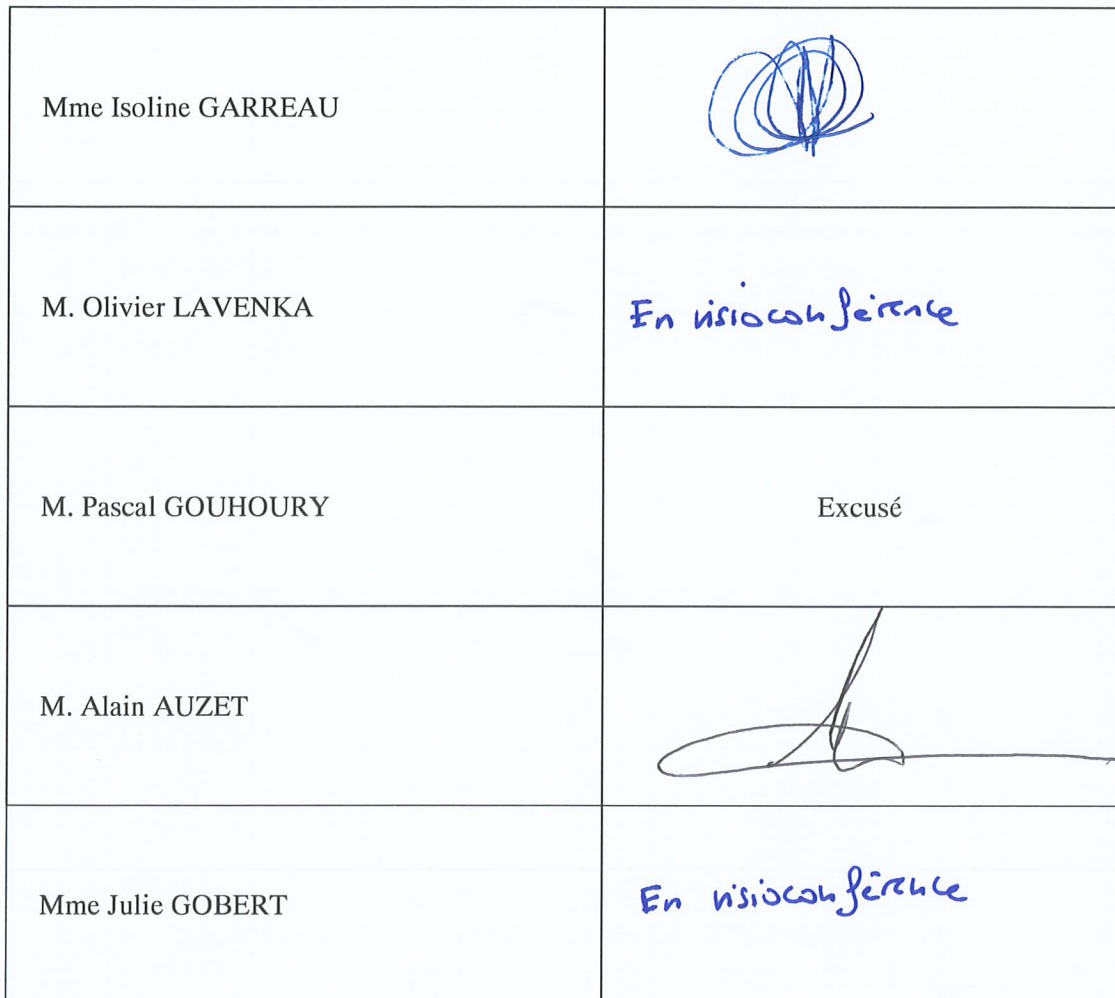 Mme Isoline GARREAU
M. Olivier LAVENKA
En visioconférence
M. Pascal GOUHOURY
Excusé
M. Alain AUZET
Mme Julie GOBERT
En visioconférence